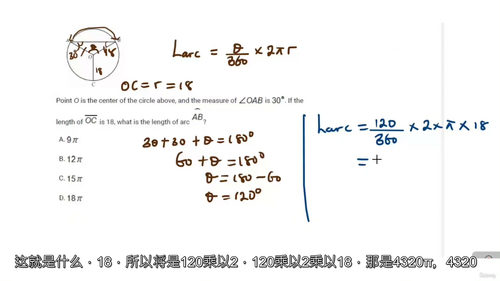 30 θ 18
18
C
Larc = θ/360 × 2πr
OC = r = 18
Point O is the center of the circle above, and the measure of ∠OAB is 30°. If the
length of OC is 18, what is the length of arc AB?
A. 9π
B. 12π
C. 15π
D. 18π
30 + 30 + θ = 180°
60 + θ = 180°
θ = 180 - 60
θ = 120°
Larc = 120/360 × 2 × π × 18
=
这就是什么·18·所以将是120乘以2·120乘以2乘以18·那是4320π，4320